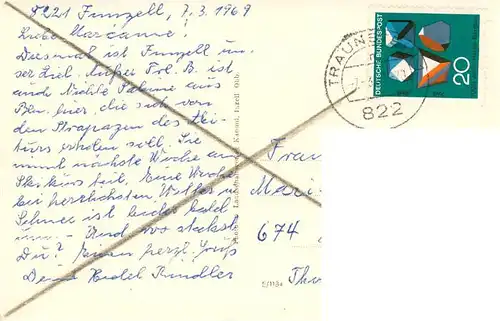 8221 Inzell, 7.3.1969
Liebe Marianne!
Diesmal ist Inzell un-
ser Ziel. Außer Frl. B. ist
auch Nichte Sabine aus
Ben. hier, die sich von
den Strapazen des Abi-
turs erholen soll. Sie
nimmt nächste Woche an
Skikurs teil. Eine Woche
bei herrlichstem Wetter u.
Schnee ist leider bald
um. Und wo steckst
Du? Einen herzl. Gruß
Deine
Frau
Mari
674
E/113a
TRAUN
822
DEUTSCHE BUNDESPOST
20